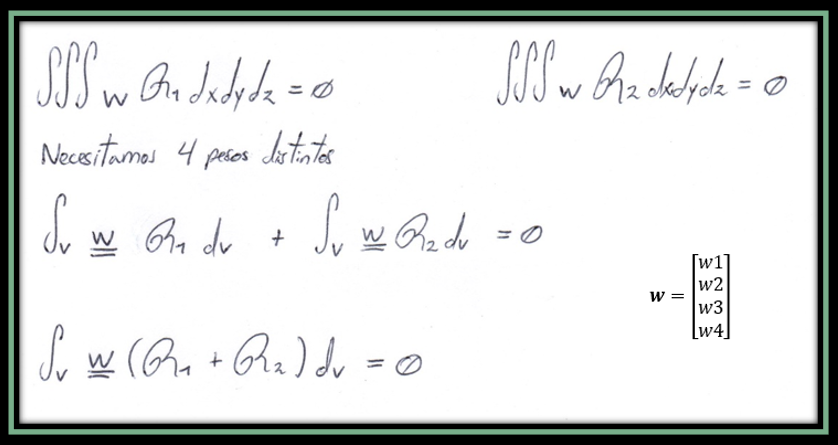 ∭ w R₁ dxdydz = ∅
∭ w R₂ dxdydz = ∅
Necesitamos 4 pesos distintos
∫ᵥ w R₁ dv + ∫ᵥ w R₂ dv = ∅
w = [w1
w2
w3
w4]
∫ᵥ w (R₁ + R₂) dv = ∅